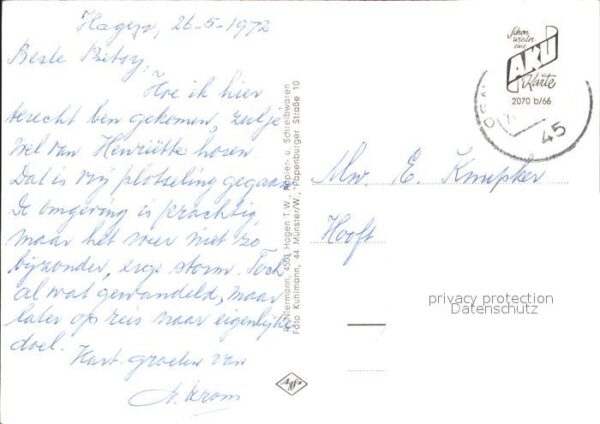 Hagen, 26-5-1972
Beste Betsy,
Hoe ik hier
terecht ben gekomen, zul je
wel van Henriëtte horen.
Dat is vrij plotseling gegaan
De omgeving is prachtig,
maar het weer niet zo
bijzonder, erge storm. Toch
al wat gewandeld, maar
later op reis naar eigenlijke
doel.
Hart. groeten van
Niermann, 4501 Hagen T.W., Papier- u. Schreibwaren
Foto Kuhlmann, 44 Münster/W., Papenburger Straße 10
Agfa
Schon
wieder
eine
AKU
Karte
2070 b/66
45
Mw. E.
Hooft
privacy protection
Datenschutz